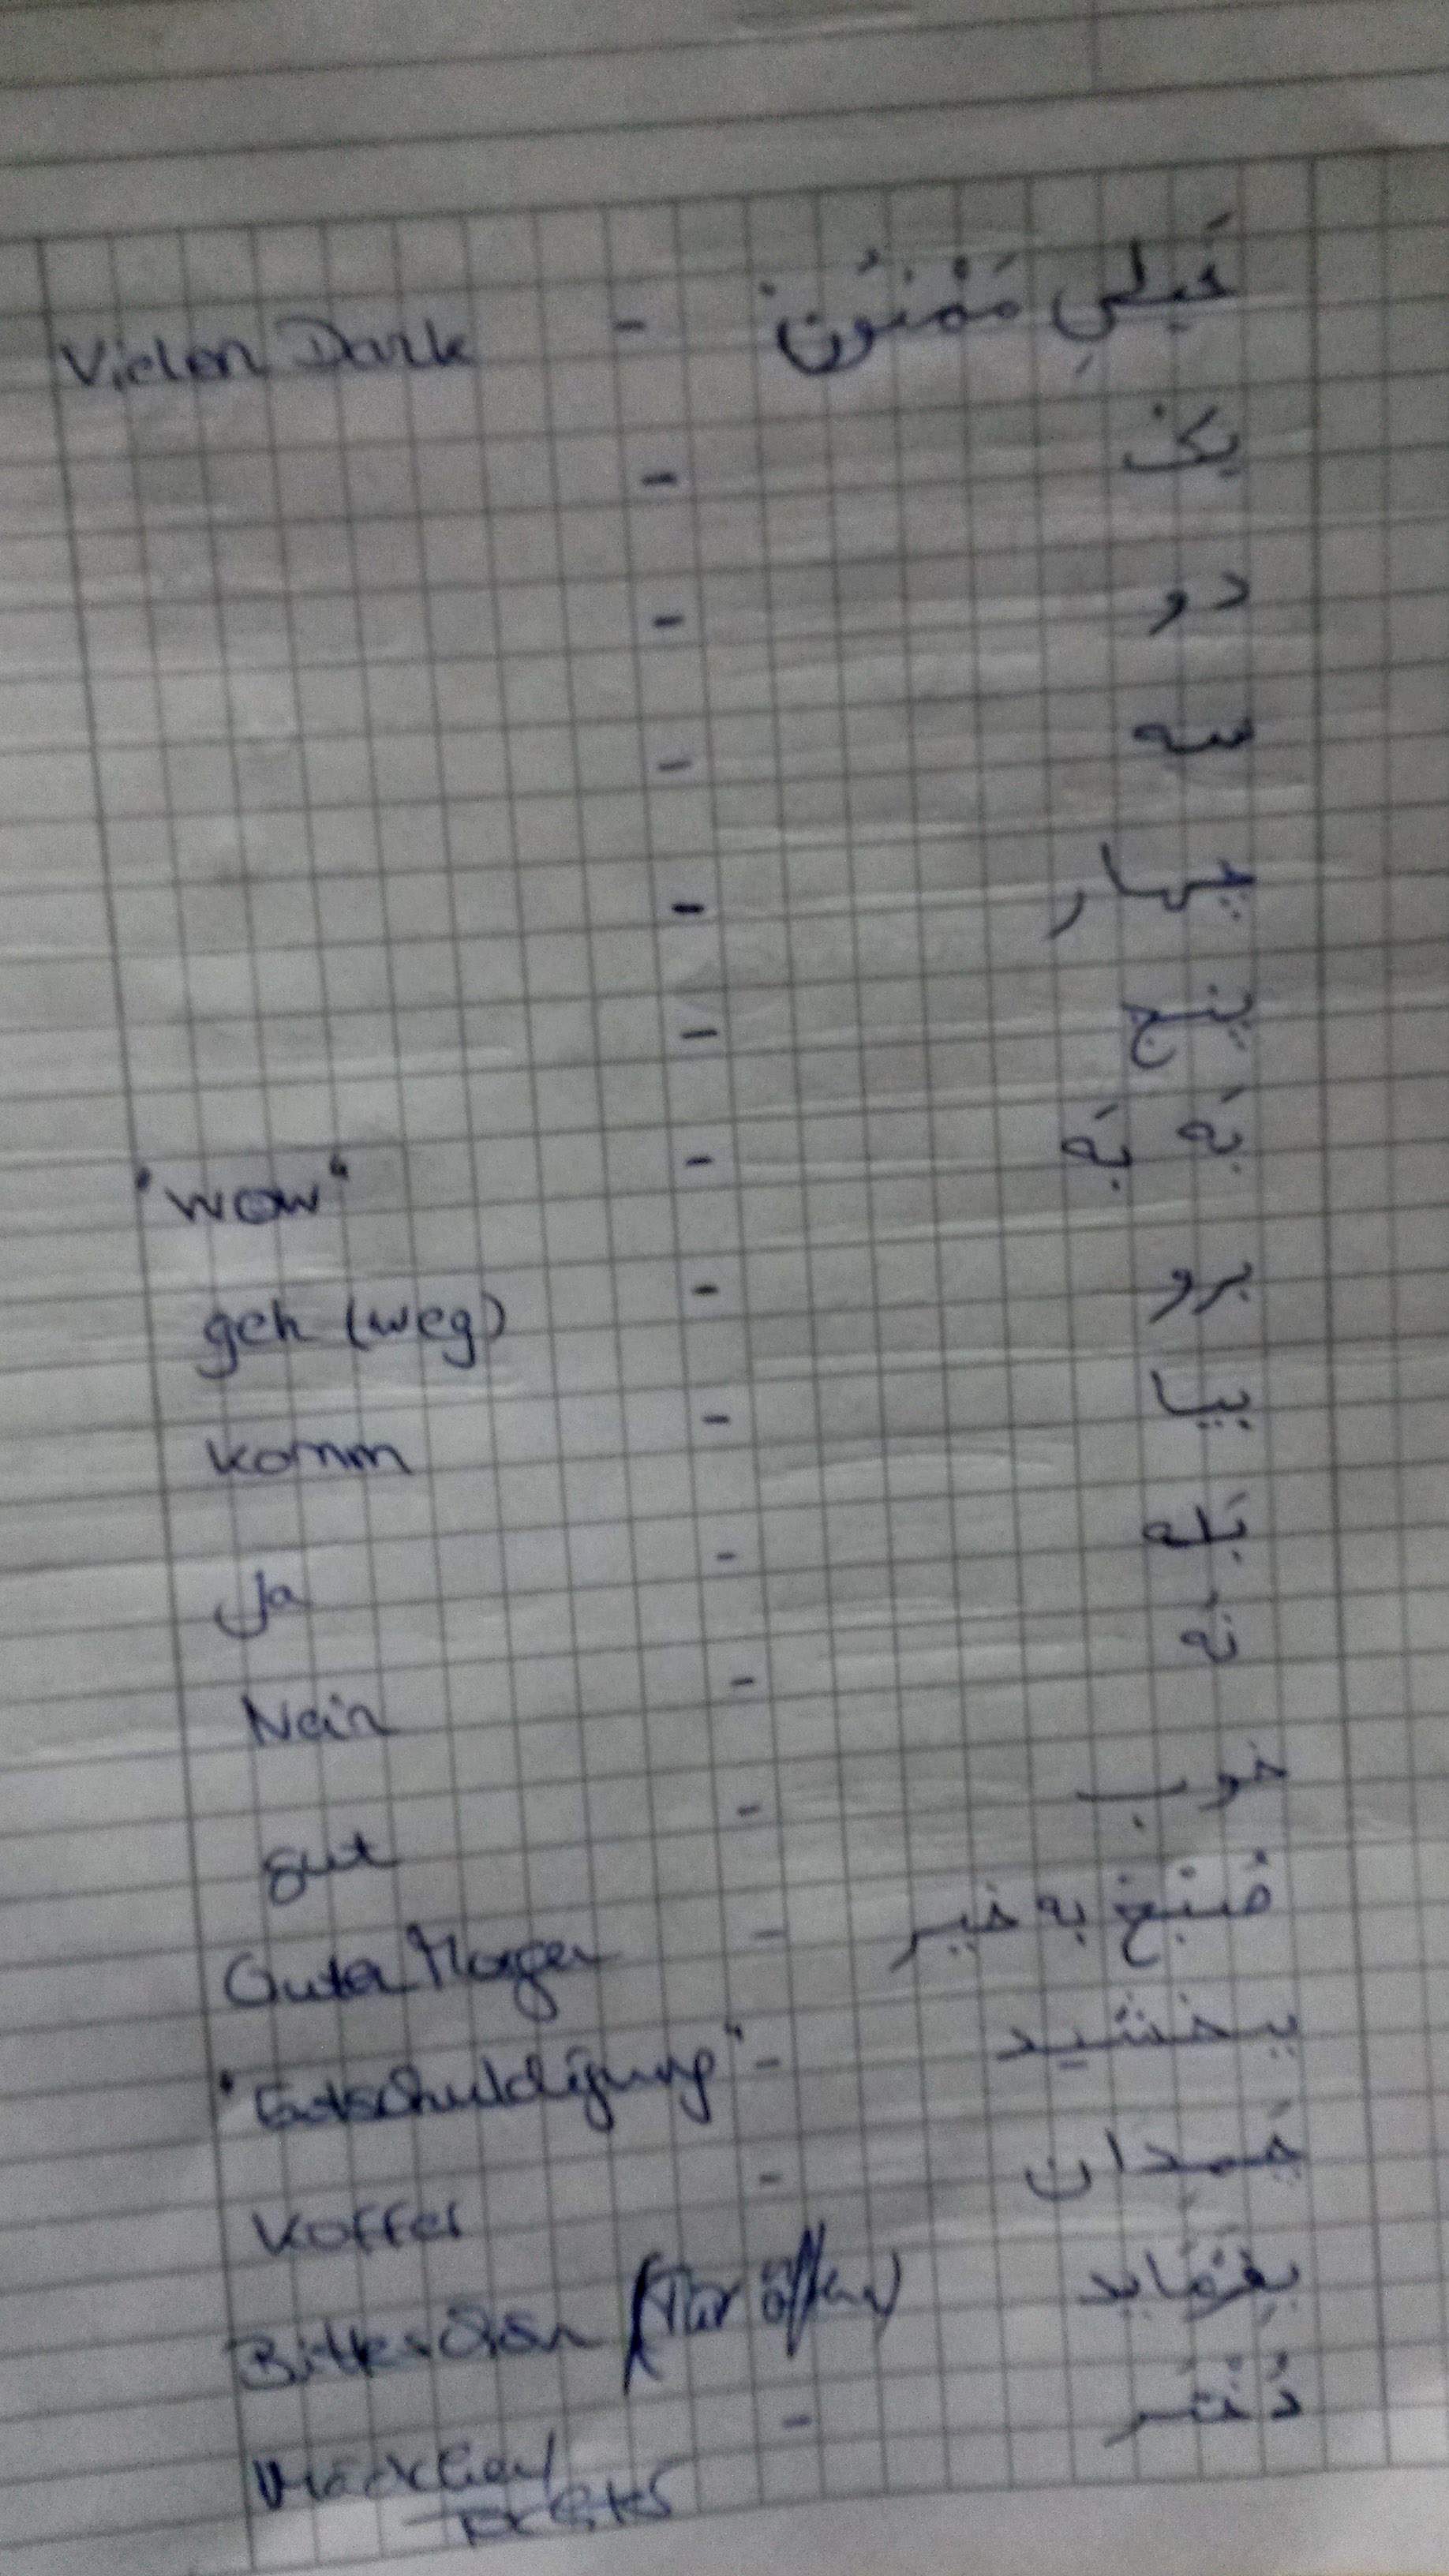 Vielen Dank - خَیلیِ مَمْنُون
- یک
- دو
- سه
- چهار
- پنج
"wow" - بَه بَه
geh (weg) - برو
komm - بیا
Ja - بَله
Nein - نَه
gut - خوب
Guten Morgen - صُبْح به خیر
"Entschuldigung" - ببخشید
Koffer - چَمِدان
Bitteschön (Tür öffnen) بِفَرْمایید
Mädchen/ - دُخْتَر
Tochter